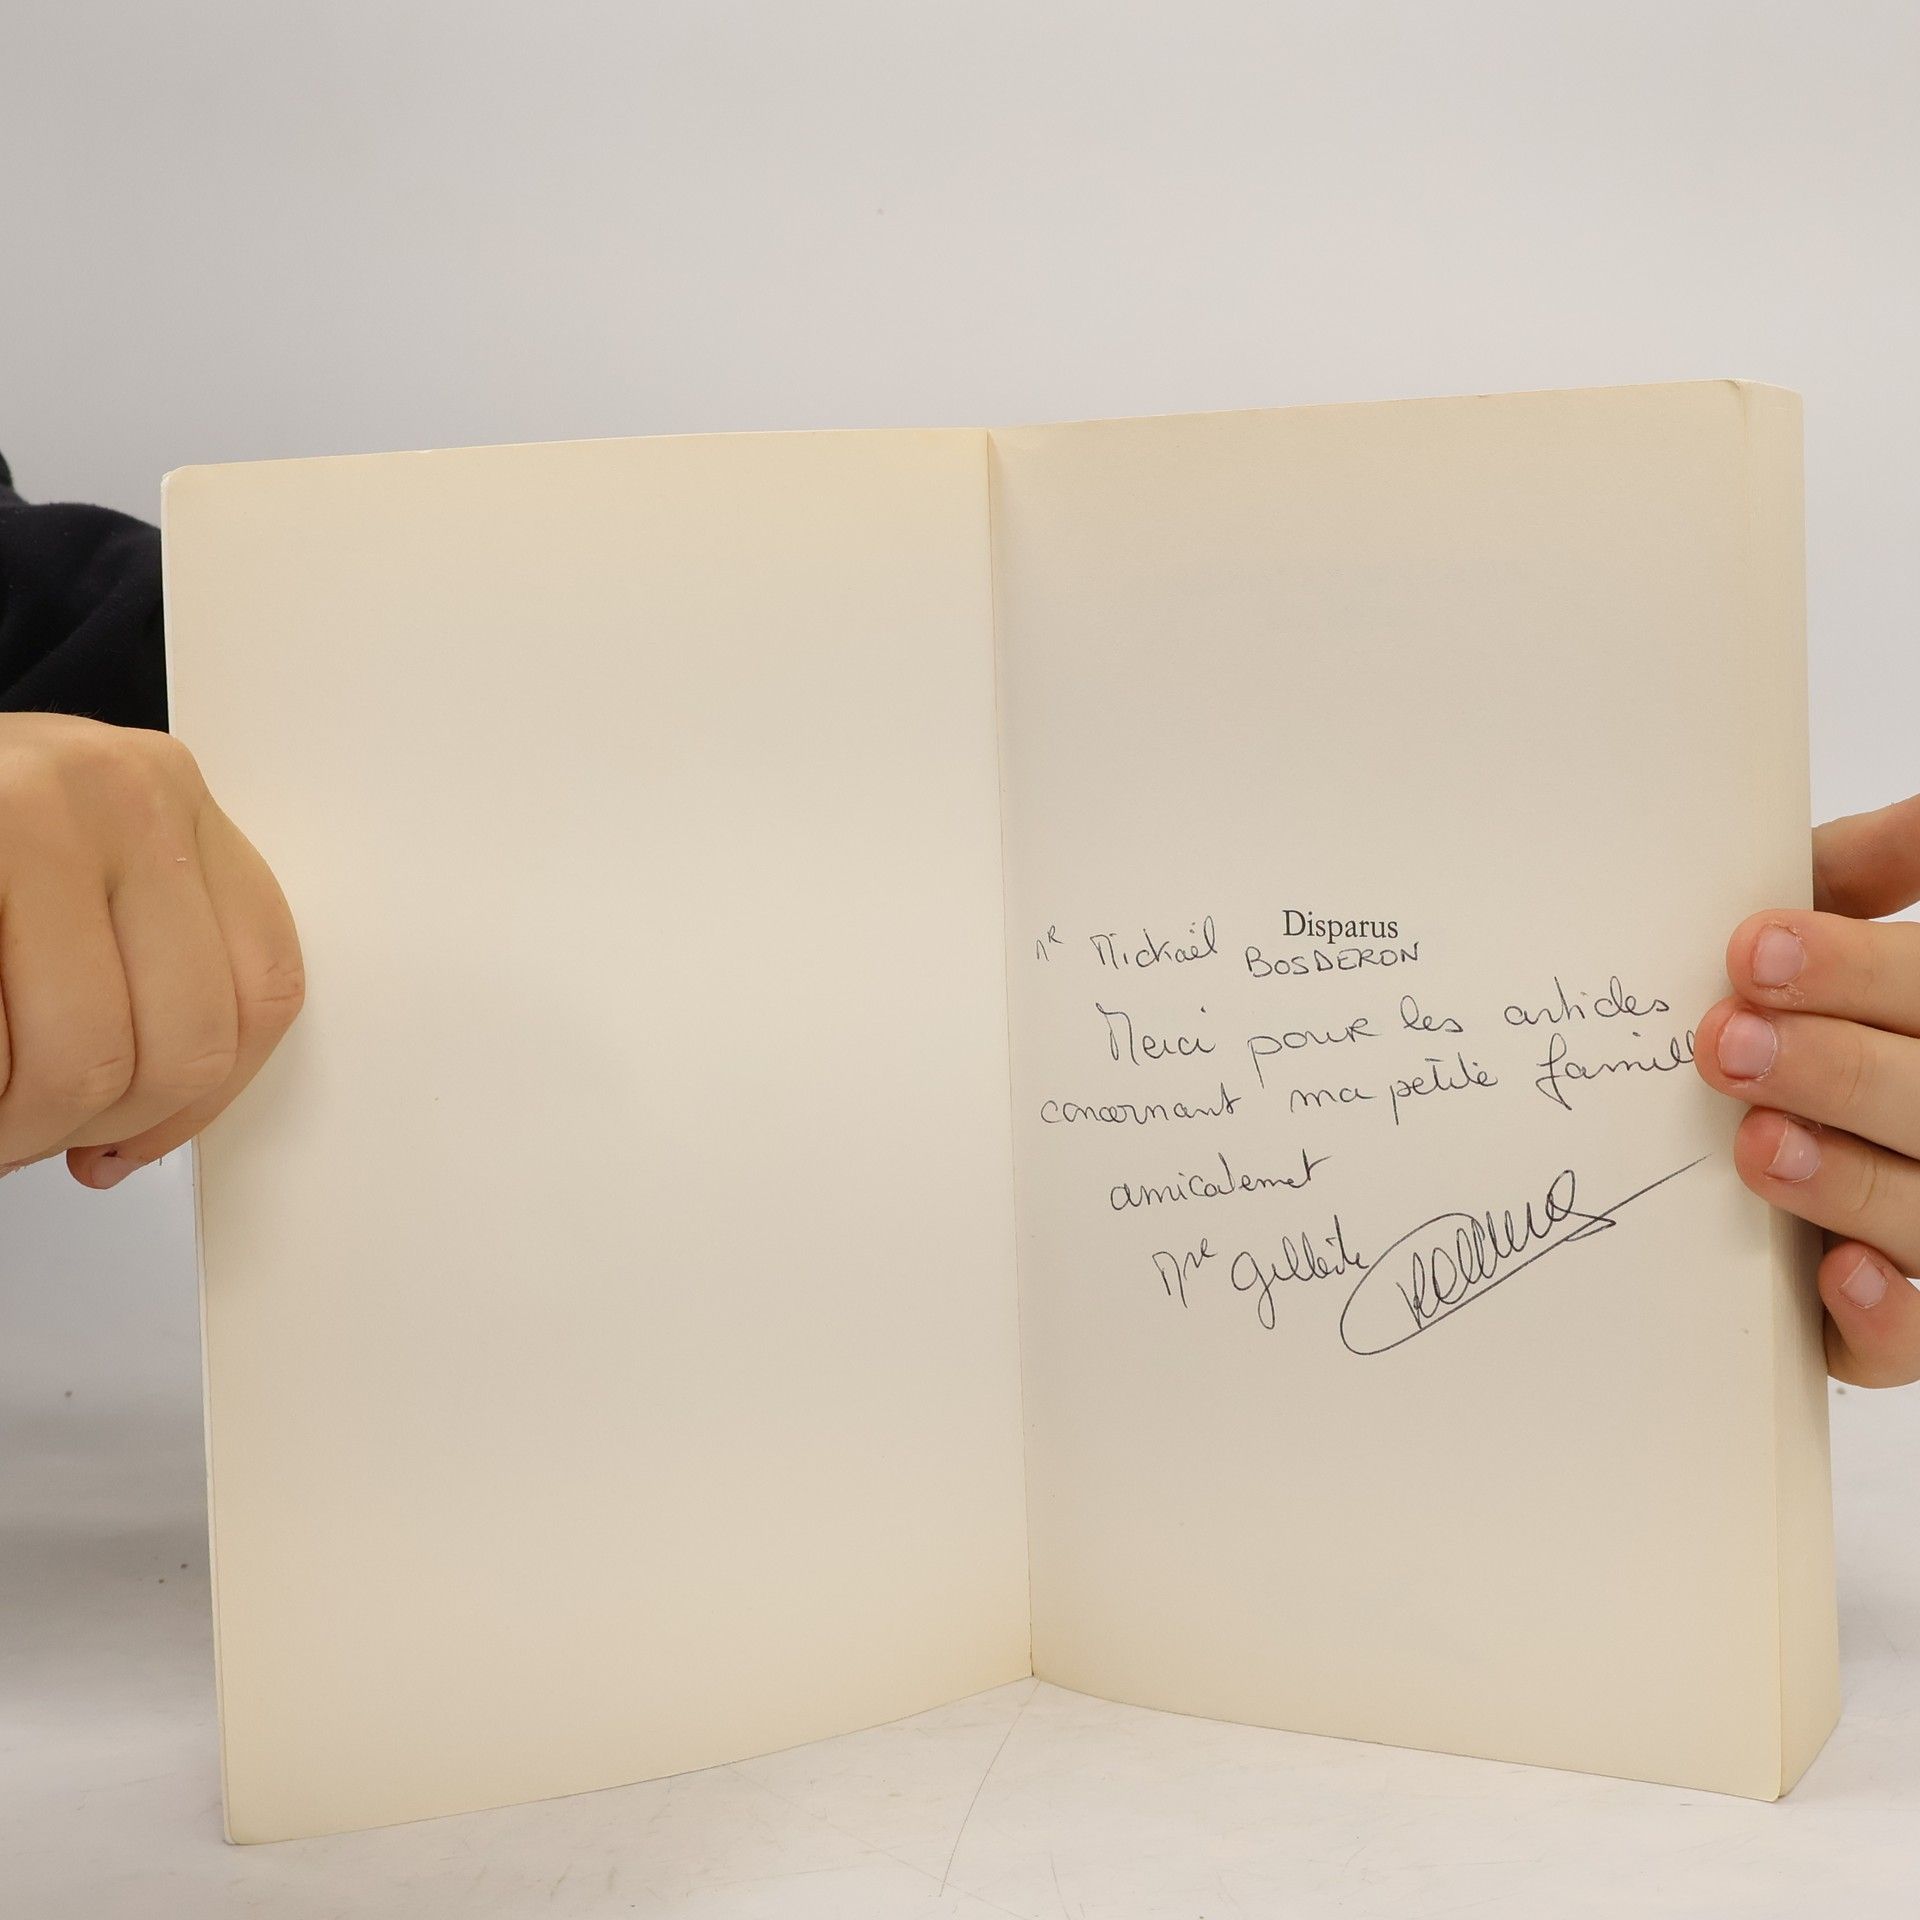 Disparus
Mr Mickaël BOSDERON
Merci pour les articles
concernant ma petite famill
amicalemet
Mme